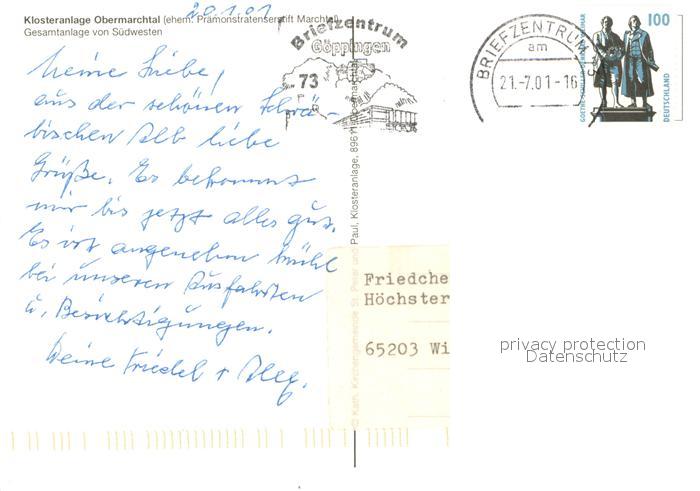 20.7.01
Klosteranlage Obermarchtal (ehem. Prämonstratenserstift Marchtal)
Gesamtanlage von Südwesten
Briefzentrum
Göppingen
73
BRIEFZENTRUM
am
21.-7.01-16
100
DEUTSCHLAND
Meine Liebe,
aus der schönen Schwä-
bischen Alb liebe
Grüße. Es bekommt
mir bis jetzt alles gut.
Es ist angenehm kühl
bei unseren Ausfahrten
u. Besichtigungen.
Deine Friedel +
© Kath. Kirchengemeinde St. Peter und Paul, Klosteranlage, 89611 Obermarchtal
Friedche
Höchster
65203 Wi
privacy protection
Datenschutz